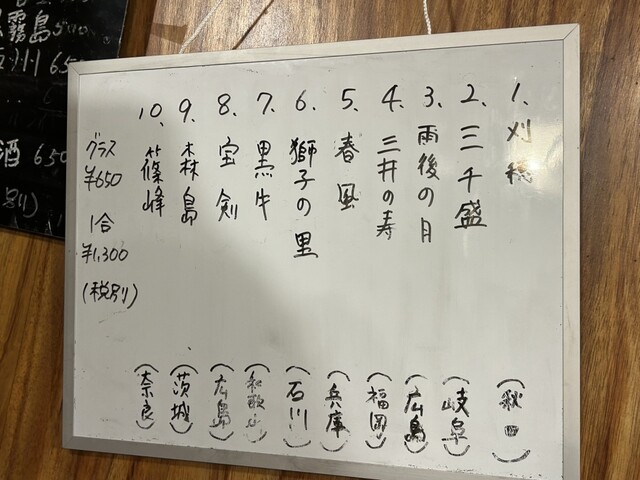 1. 刈穂 (秋田)
2. 三千盛 (岐阜)
3. 雨後の月 (広島)
4. 三井の寿 (福岡)
5. 春風 (兵庫)
6. 獅子の里 (石川)
7. 黒牛 (和歌山)
8. 宝剣 (広島)
9. 森島 (茨城)
10. 篠峰 (奈良)
グラス
¥650
1合
¥1,300
(税別)
霧島
650
酒 650